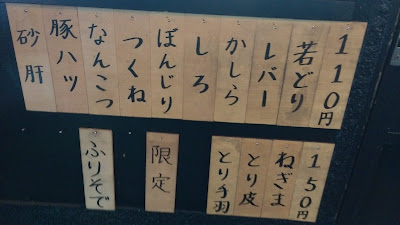 110円
若どり
レバー
かしら
しろ
ぼんじり
つくね
なんこつ
豚ハツ
砂肝
150円
ねぎま
とり皮
とり手羽
限定
ふりそで